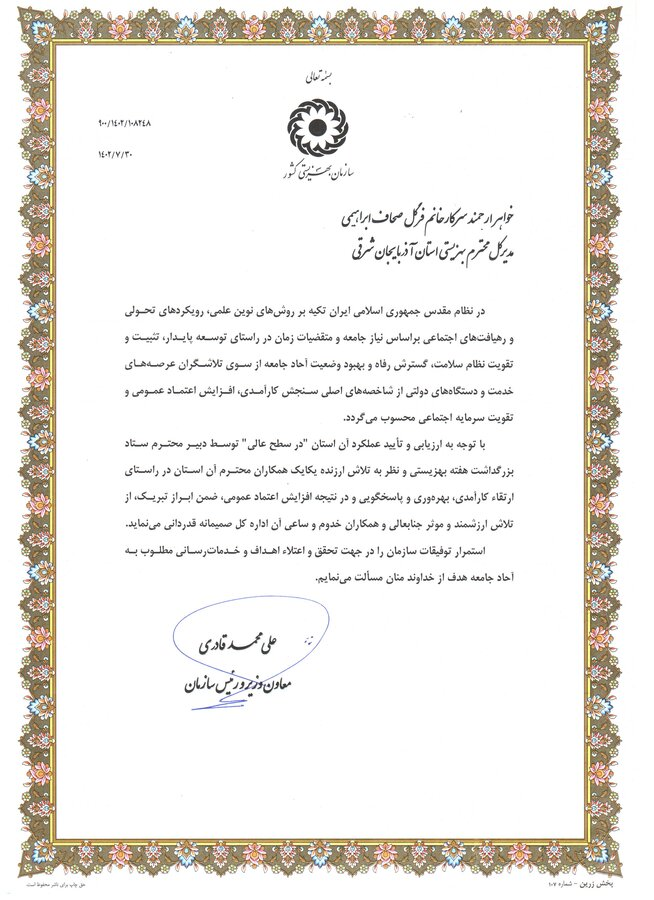 بسمه تعالی
۹۰۰/۱۴۰۲/۱۰۸۲۴۸
۱۴۰۲/۷/۳۰
سازمان بهزیستی کشور
خواهر ارجمند سرکار خانم فرگل صحاف ابراهیمی
مدیرکل محترم بهزیستی استان آذربایجان شرقی
در نظام مقدس جمهوری اسلامی ایران تکیه بر روش‌های نوین علمی، رویکردهای تحولی
و رهیافت‌های اجتماعی براساس نیاز جامعه و متقضیات زمان در راستای توسعه پایدار، تثبیت و
تقویت نظام سلامت، گسترش رفاه و بهبود وضعیت آحاد جامعه از سوی تلاشگران عرصه‌های
خدمت و دستگاه‌های دولتی از شاخصه‌های اصلی سنجش کارآمدی، افزایش اعتماد عمومی و
تقویت سرمایه اجتماعی محسوب می‌گردد.
با توجه به ارزیابی و تأیید عملکرد آن استان "در سطح عالی" توسط دبیر محترم ستاد
بزرگداشت هفته بهزیستی و نظر به تلاش ارزنده یکایک همکاران محترم آن استان در راستای
ارتقاء کارآمدی، بهره‌وری و پاسخگویی و در نتیجه افزایش اعتماد عمومی، ضمن ابراز تبریک، از
تلاش ارزشمند و موثر جنابعالی و همکاران خدوم و ساعی آن اداره کل صمیمانه قدردانی می‌نماید.
استمرار توفیقات سازمان را در جهت تحقق و اعتلاء اهداف و خدمات‌رسانی مطلوب به
آحاد جامعه هدف از خداوند منان مسألت می‌نمایم.
علی محمد قادری
معاون وزیر و رئیس سازمان
پخش زرین - شماره ۱۰۷
حق چاپ برای ناشر محفوظ است.